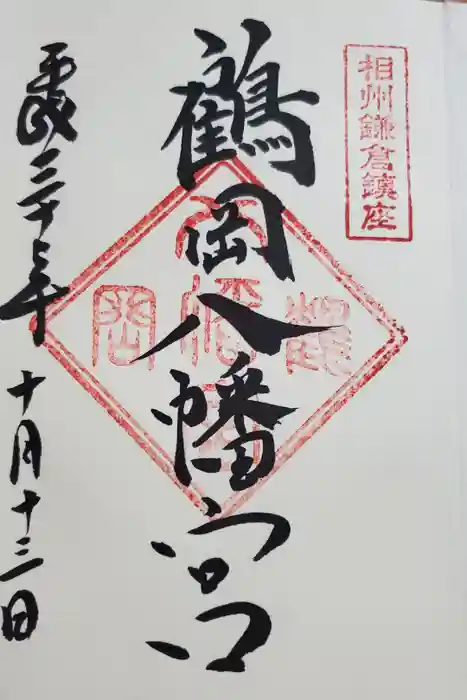 相州鎌倉鎮座
鶴岡八幡宮
八幡宮
鶴
岡
平成三十年十月十三日